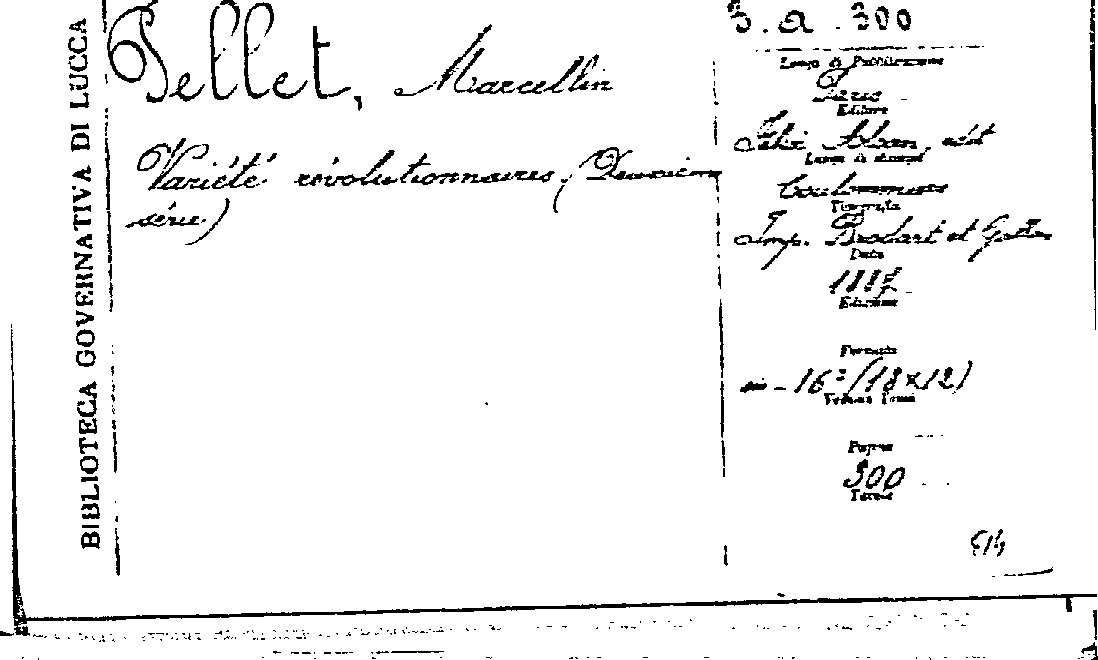 BIBLIOTECA GOVERNATIVA DI LUCCA
Pellet, Marcellin
Variété révolutionnaires, (Deuxième
série)
3. a. 300
Luogo di Pubblicazione
Paris
Editore
Félix Alcan, edit
Luogo di stampa
Coulommiers
Tipografia
Imp. Brodart et
Data
1887
Edizione
Formato
in-16º (18x12)
Pagine
300